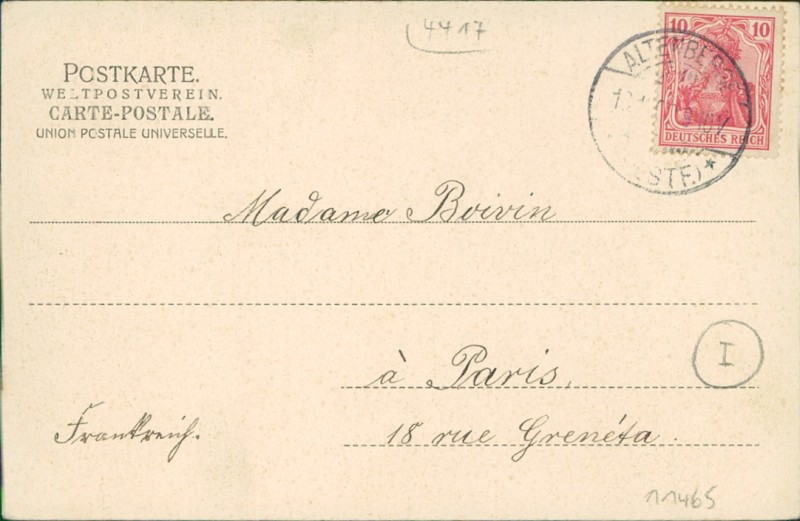 4417
POSTKARTE.
WELTPOSTVEREIN.
CARTE-POSTALE.
UNION POSTALE UNIVERSELLE.
10 10
DEUTSCHES REICH
ALTENBERGE
(WESTF.) *
Madame Boivin
I
à Paris,
Frankreich.
18 rue Grenéta.
11465